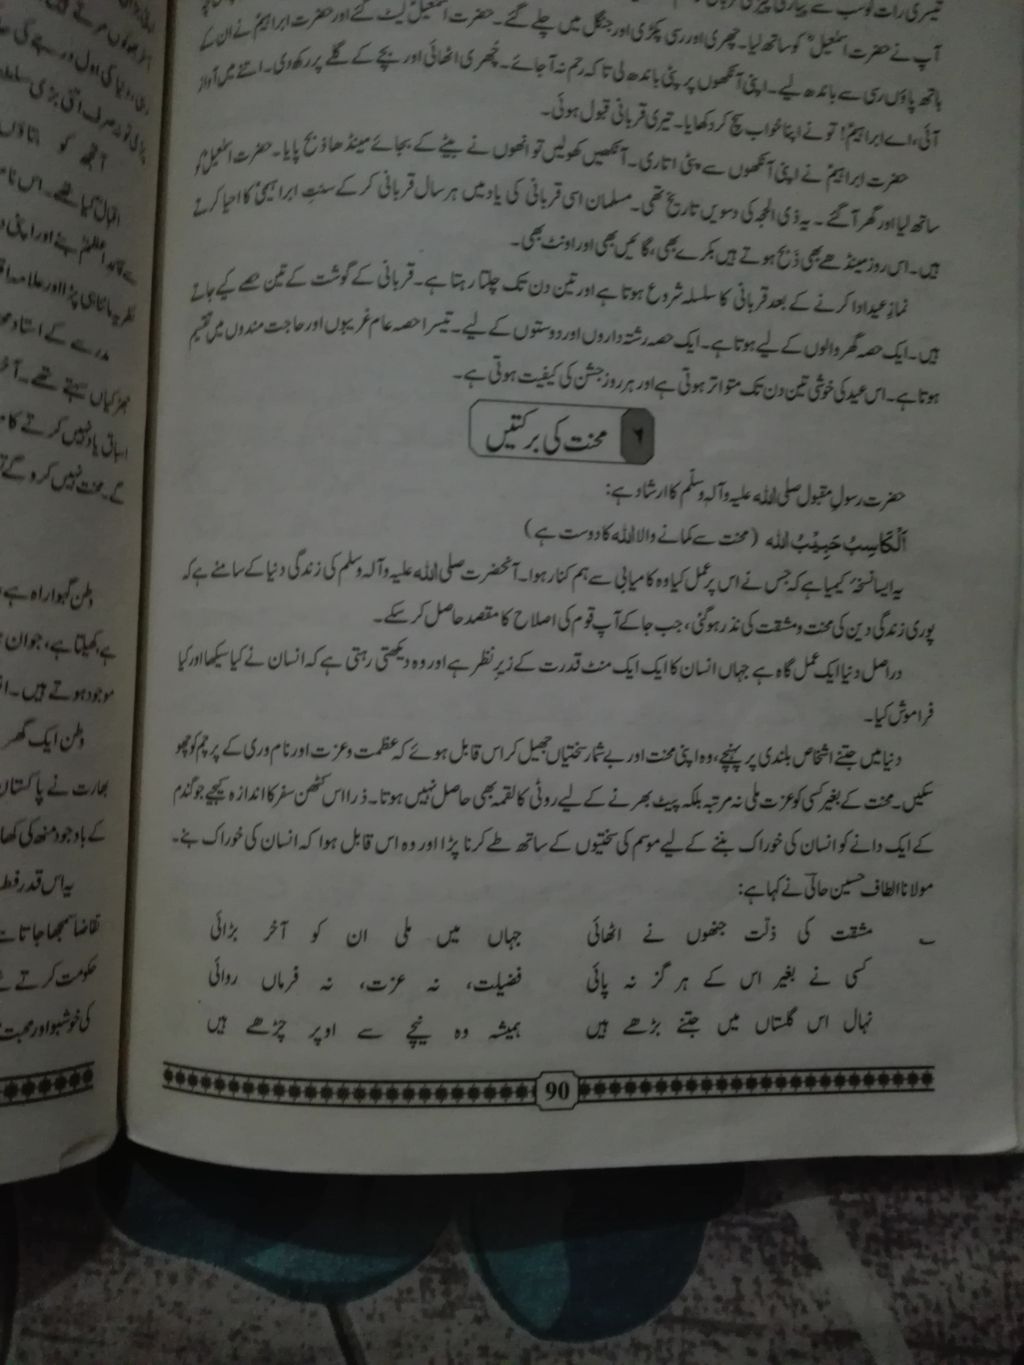 آپ نے حضرت اسمٰعیلؑ کو ساتھ لیا۔ چھری اور رسی پکڑی اور جنگل میں چلے گئے۔ حضرت اسمٰعیلؑ لیٹ گئے اور حضرت ابراہیمؑ نے ان کے
ہاتھ پاؤں رسی سے باندھ لیے۔ اپنی آنکھوں پر پٹی باندھ لی تاکہ رحم نہ آ جائے۔ چُھری اٹھائی اور بچے کے گلے پر رکھ دی۔ اتنے میں آواز
آئی، اے ابراہیمؑ! تو نے اپنا خواب سچ کر دکھایا۔ تیری قربانی قبول ہوئی۔
حضرت ابراہیمؑ نے اپنی آنکھوں سے پٹی اتاری۔ آنکھیں کھولیں تو انھوں نے بیٹے کے بجائے مینڈھا ذبح پایا۔ حضرت اسمٰعیلؑ کو
ساتھ لیا اور گھر آ گئے۔ یہ ذی الحجہ کی دسویں تاریخ تھی۔ مسلمان اسی قربانی کی یاد میں ہر سال قربانی کر کے سنتِ ابراہیمیؑ کا احیا کرتے
ہیں۔ اس روز مینڈھے بھی ذبح ہوتے ہیں بکرے بھی، گائیں بھی اور اونٹ بھی۔
نمازِ عید ادا کرنے کے بعد قربانی کا سلسلہ شروع ہوتا ہے اور تین دن تک چلتا رہتا ہے۔ قربانی کے گوشت کے تین حصے کیے جاتے
ہیں۔ ایک حصہ گھر والوں کے لیے ہوتا ہے۔ ایک حصہ رشتہ داروں اور دوستوں کے لیے۔ تیسرا حصہ عام غریبوں اور حاجت مندوں میں تقسیم
ہوتا ہے۔ اس عید کی خوشی تین دن تک متواتر ہوتی ہے اور ہر روز جشن کی کیفیت ہوتی ہے۔
۶ محنت کی برکتیں
حضرت رسولِ مقبول صلی اللہ علیہ وآلہٖ وسلّم کا ارشاد ہے:
اَلْکَاسِبُ حَبِیْبُ اللہ (محنت سے کمانے والا اللہ کا دوست ہے)
یہ ایسا نسخۂ کیمیا ہے کہ جس نے اس پر عمل کیا وہ کامیابی سے ہم کنار ہوا۔ آنحضرت صلی اللہ علیہ وآلہٖ وسلم کی زندگی دنیا کے سامنے ہے کہ
پوری زندگی دین کی محنت و مشقت کی نذر ہو گئی، جب جا کے آپ قوم کی اصلاح کا مقصد حاصل کر سکے۔
دراصل دنیا ایک عمل گاہ ہے جہاں انسان کا ایک ایک منٹ قدرت کے زیرِ نظر ہے اور وہ دیکھتی رہتی ہے کہ انسان نے کیا سیکھا اور کیا
فراموش کیا۔
دنیا میں جتنے اشخاص بلندی پر پہنچے، وہ اپنی محنت اور بے شمار سختیاں جھیل کر اس قابل ہوئے کہ عظمت و عزت اور نام وری کے پرچم کو چھو
سکیں۔ محنت کے بغیر کسی کو عزت ملی نہ مرتبہ بلکہ پیٹ بھرنے کے لیے روٹی کا لقمہ بھی حاصل نہیں ہوتا۔ ذرا اس کٹھن سفر کا اندازہ کیجیے جو گندم
کے ایک دانے کو انسان کی خوراک بننے کے لیے موسم کی سختیوں کے ساتھ طے کرنا پڑا اور وہ اس قابل ہوا کہ انسان کی خوراک بنے۔
مولانا الطاف حسین حالیؔ نے کہا ہے:
؎ مشقت کی ذلّت جنھوں نے اٹھائی جہاں میں ملی ان کو آخر بڑائی
کسی نے بغیر اس کے ہر گز نہ پائی فضیلت، نہ عزت، نہ فرماں روائی
نہال اس گلستاں میں جتنے بڑھے ہیں ہمیشہ وہ نیچے سے اوپر چڑھے ہیں
90
وطن گہوارہ ہے
موجود ہوتے ہیں۔
وطن ایک گھر
بھارت نے پاکستان
یہ اس قدر
حکومت کرتے
کی خوشبو اور محبت